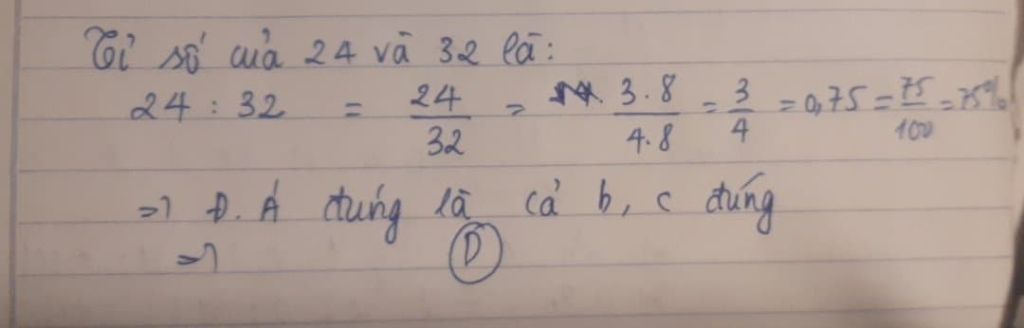 Tỉ số của 24 và 32 là:
24 : 32 = 24/32 = 3.8/4.8 = 3/4 = 0,75 = 75/100 = 75%
=> Đ.Á đúng là cả b, c đúng
=> D